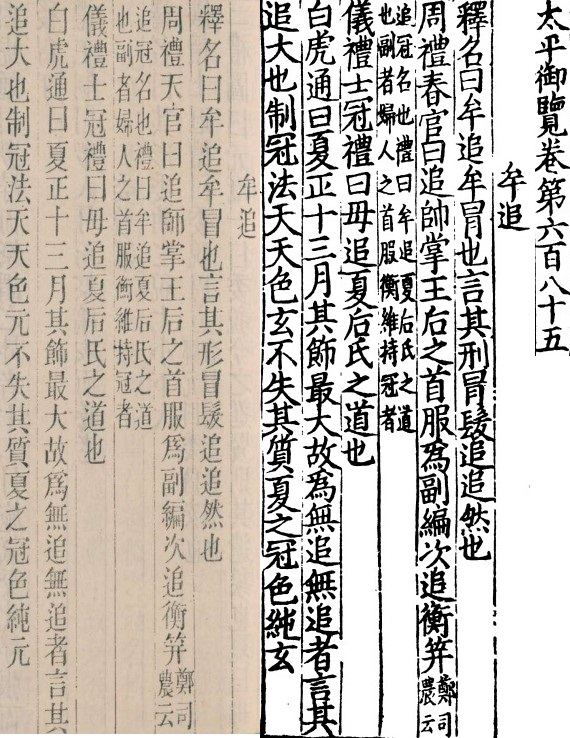 太平御覽卷第六百八十五
牟追
釋名曰牟追牟冐也言其刑冐髮追追然也
周禮春官曰追師掌王后之首服爲副編次追衡笄鄭司農云
追冠名也禮曰牟追夏后氏之道
也副者婦人之首服衡維持冠者
儀禮士冠禮曰毋追夏后氏之道也
白虎通曰夏正十三月其飾最大故為無追無追者言其
追大也制冠法天天色玄不失其質夏之冠色純玄
牟追
釋名曰牟追牟冒也言其形冒髮追追然也
周禮天官曰追師掌王后之首服爲副編次追衡笄鄭司農云
追冠名也禮曰牟追夏后氏之道
也副者婦人之首服衡維持冠者
儀禮士冠禮曰毋追夏后氏之道也
白虎通曰夏正十三月其飾最大故爲無追無追者言其
追大也制冠法天天色元不失其質夏之冠色純元